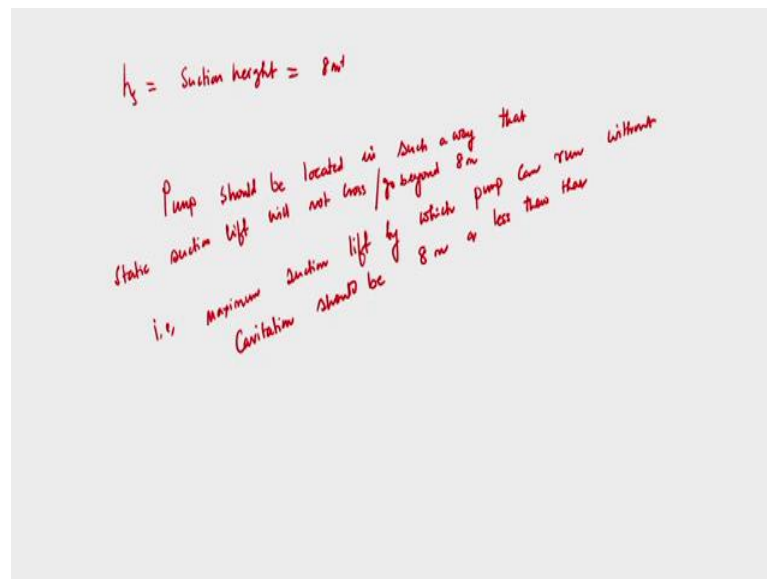 hs = Suction height = 8 mt
Pump should be located in such a way that
static suction lift will not cross / go beyond 8 m
i.e, maximum suction lift by which pump can run without
Cavitation should be 8 m or less than that